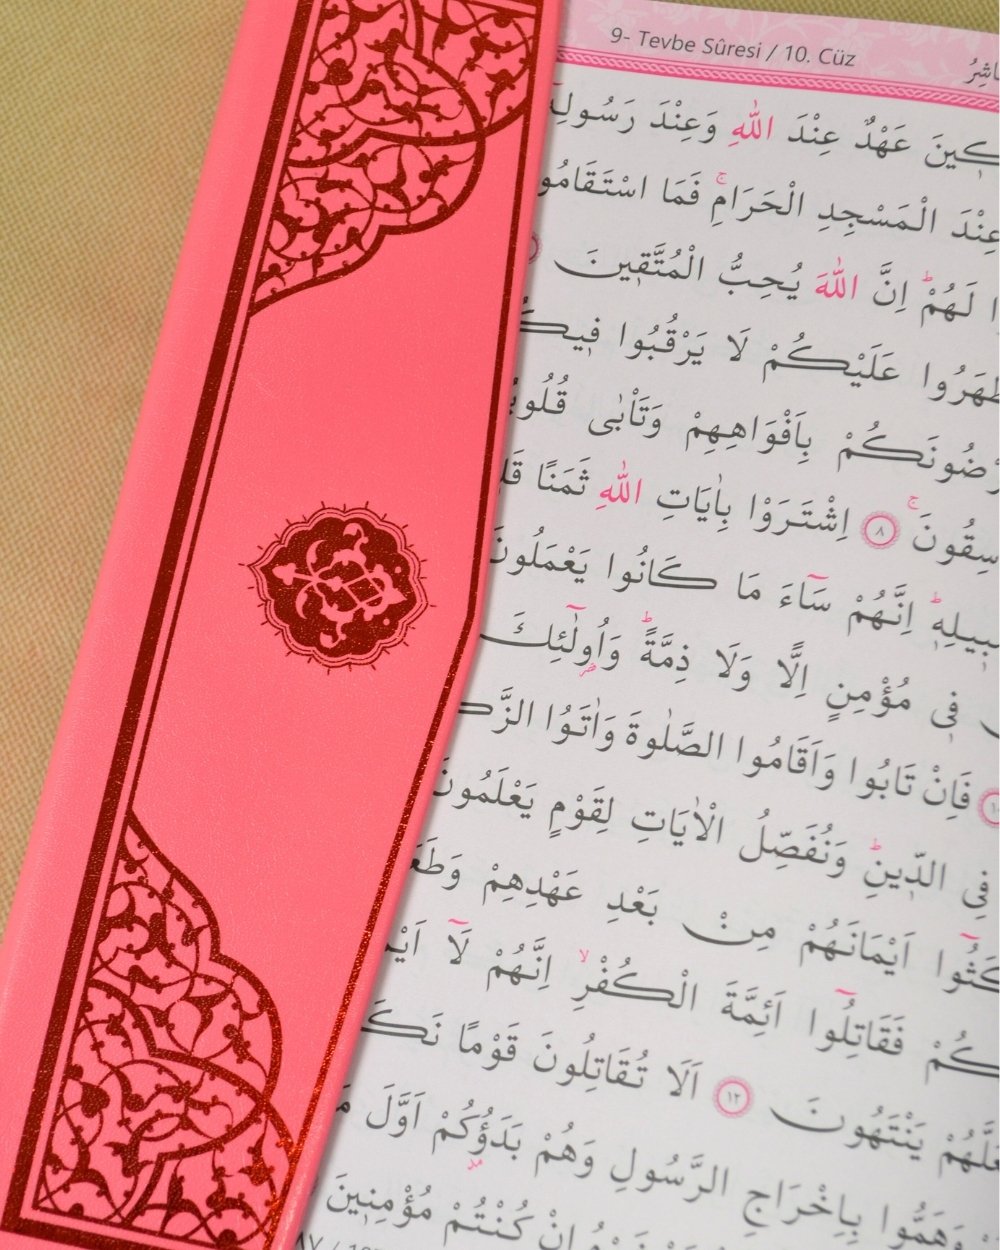 9- Tevbe Sûresi / 10. Cüz
عَهْدٌ عِنْدَ اللّٰهِ وَعِنْدَ رَسُولِهٖ
عِنْدَ الْمَسْجِدِ الْحَرَامِۚ فَمَا اسْتَقَامُوا
لَهُمْۜ اِنَّ اللّٰهَ يُحِبُّ الْمُتَّقٖينَ
عَلَيْكُمْ لَا يَرْقُبُوا فٖيكُمْ
بِاَفْوَاهِهِمْ وَتَأْبٰى
۝٨ اِشْتَرَوْا بِاٰيَاتِ اللّٰهِ ثَمَنًا
اِنَّهُمْ سَٓاءَ مَا كَانُوا يَعْمَلُونَ
فٖي مُؤْمِنٍ اِلًّا وَلَا ذِمَّةًۜ وَاُو۬لٰٓئِكَ
فَاِنْ تَابُوا وَاَقَامُوا الصَّلٰوةَ وَاٰتَوُا
فِي الدّٖينِۜ وَنُفَصِّلُ الْاٰيَاتِ لِقَوْمٍ يَعْلَمُونَ
اَيْمَانَهُمْ مِنْ بَعْدِ عَهْدِهِمْ
فَقَاتِلُٓوا اَئِمَّةَ الْكُفْرِۙ اِنَّهُمْ لَٓا
يَنْتَهُونَ ۝١٢ اَلَا تُقَاتِلُونَ قَوْمًا
وَهَمُّوا بِاِخْرَاجِ الرَّسُولِ وَهُمْ بَدَؤُ۫كُمْ اَوَّلَ
اِنْ كُنْتُمْ مُؤْمِنٖينَ